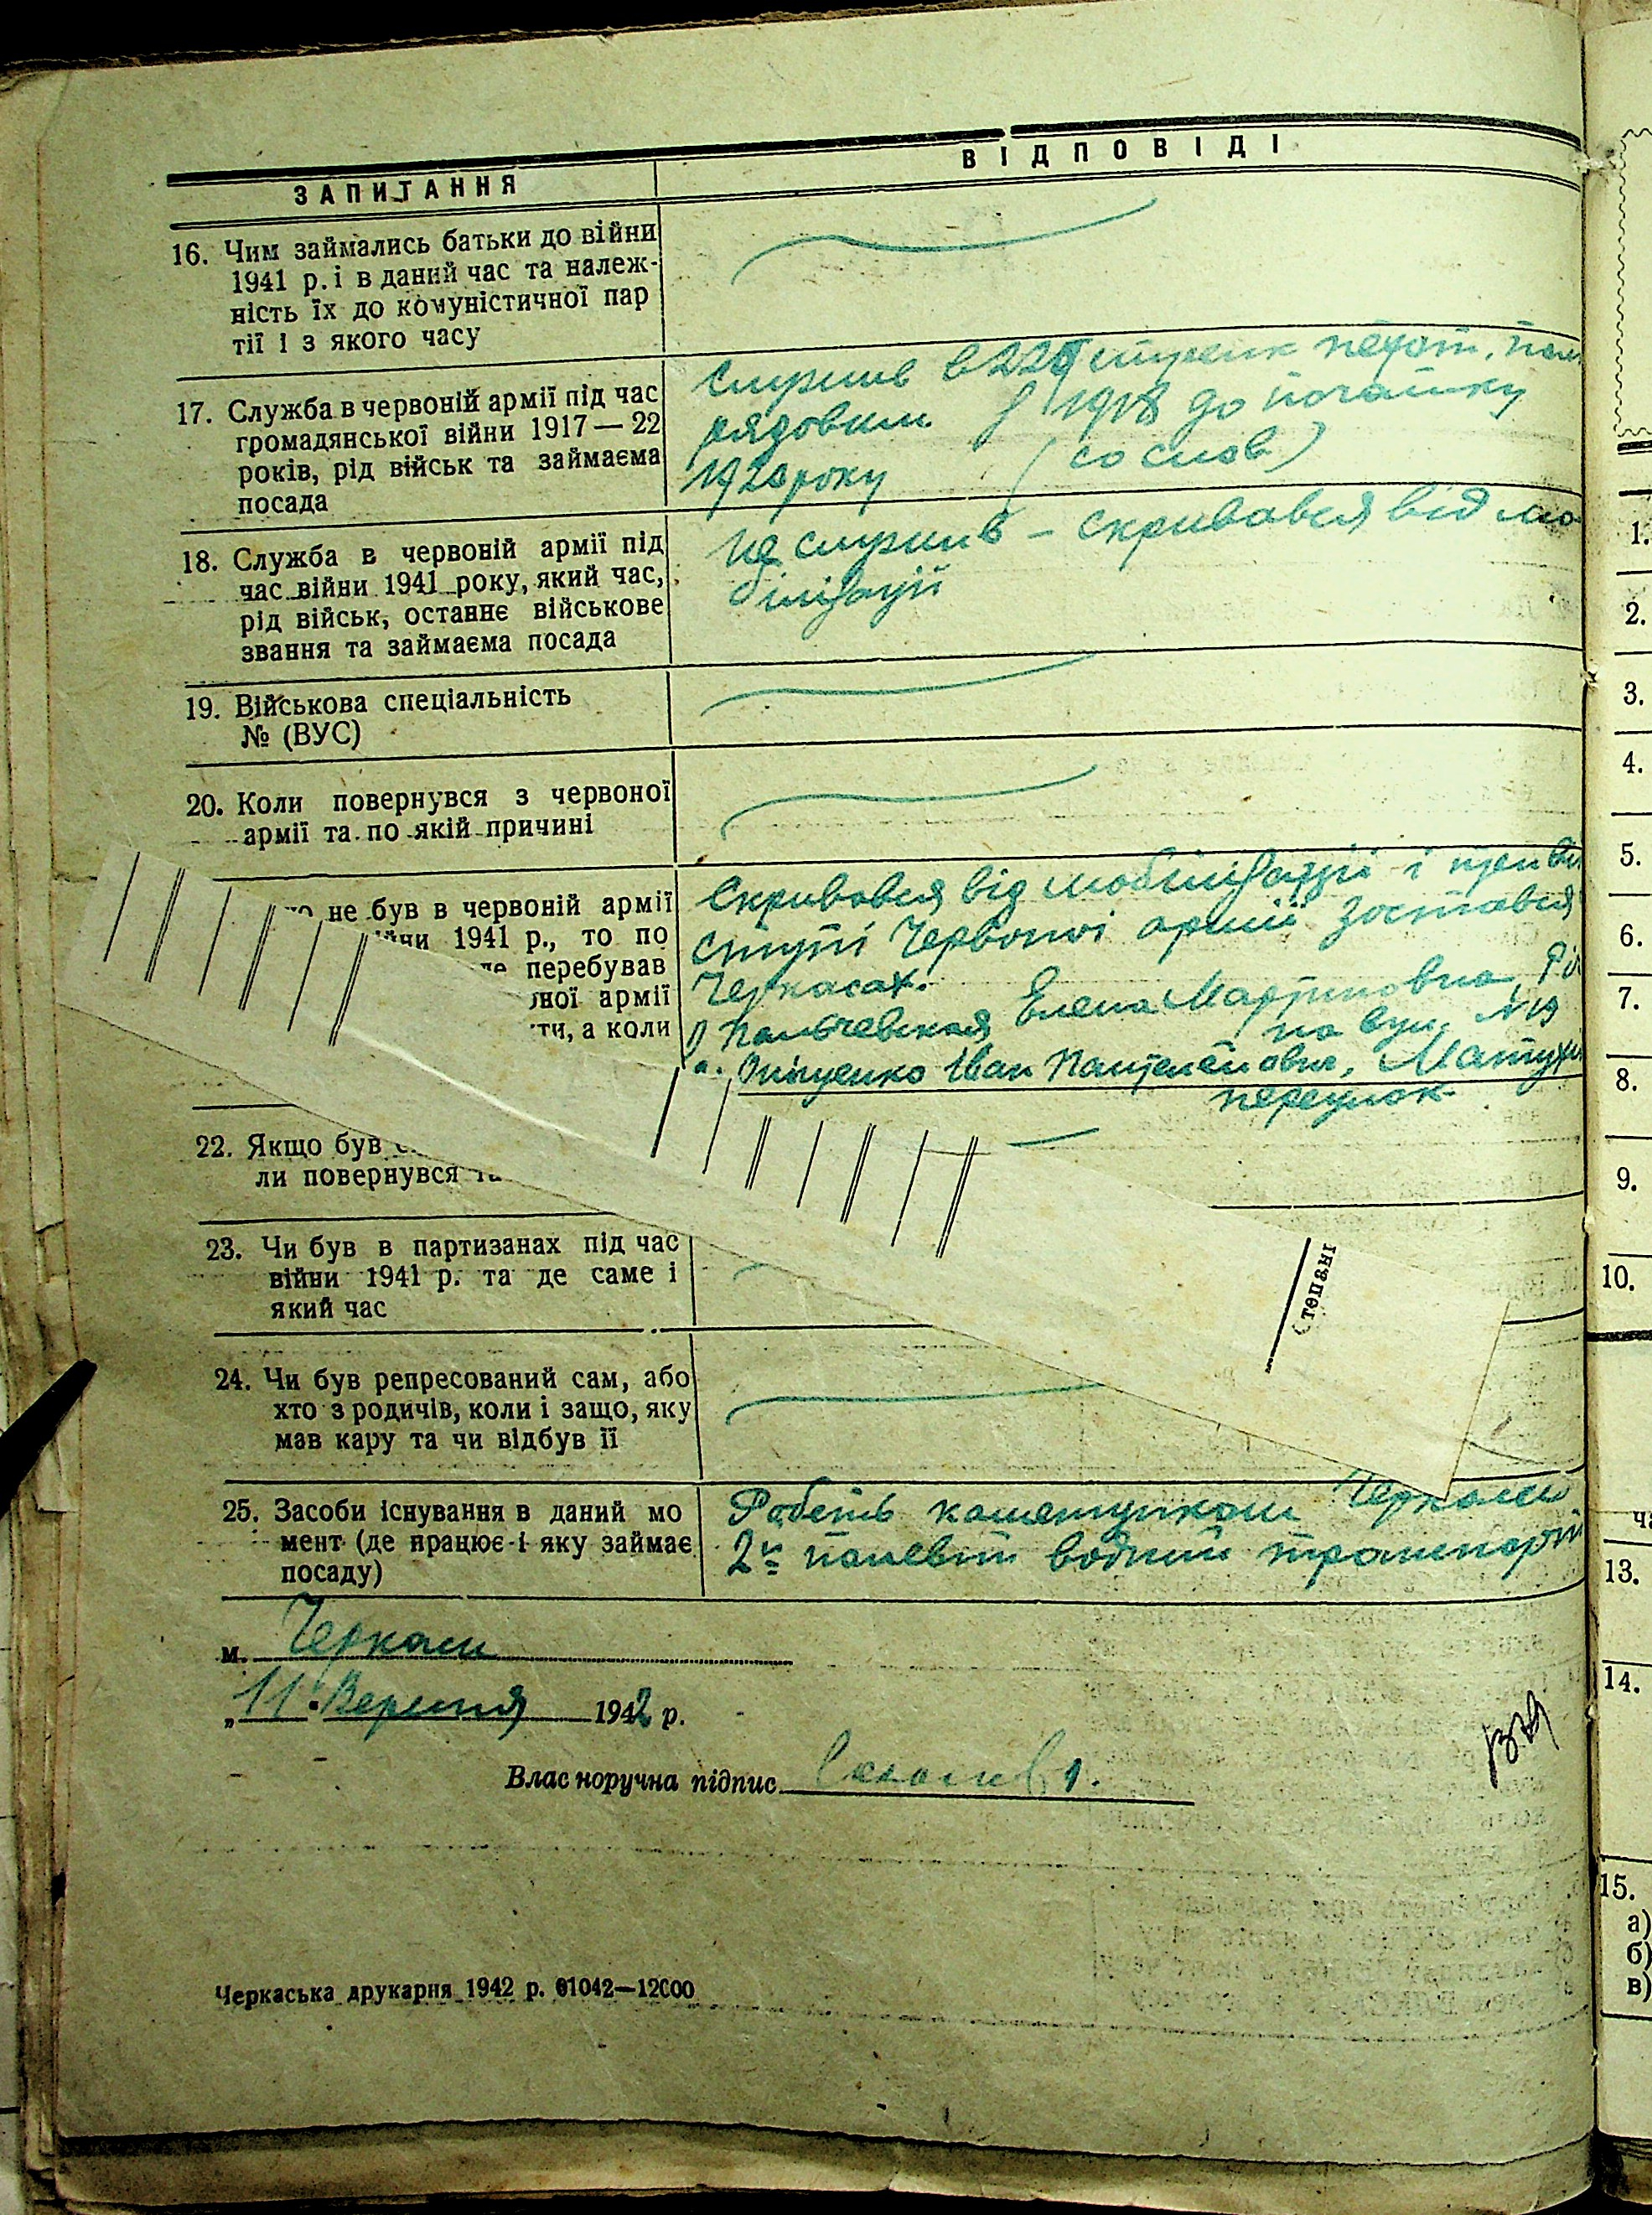 ЗАПИТАННЯ
ВІДПОВІДІ
16. Чим займались батьки до війни
1941 р. і в даний час та належ-
ність їх до комуністичної пар
тії і з якого часу
17. Служба в червоній армії під час
громадянської війни 1917—22
років, рід військ та займаєма
посада
служив в 225 стрелк пехот. пол
рядовим з 1918 до початку
1920 року (со слов)
18. Служба в червоній армії під
час війни 1941 року, який час,
рід військ, останнє військове
звання та займаєма посада
не служив – скривався від мо
білізації
19. Військова спеціальність
№ (ВУС)
20. Коли повернувся з червоної
армії та по якій причині
не був в червоній армії
1941 р., то по
перебував
ної армії
ти, а коли
Скривався від мобілізації і при ві
ступі Червоної армії зостався
Черкасах.
1) Пальчевская Елена Мартиновна,
по вул. №19
Іван Пантелеймович,
переулок
22. Якщо був
ли повернувся та
23. Чи був в партизанах під час
війни 1941 р. та де саме і
який час
24. Чи був репресований сам, або
хто з родичів, коли і защо, яку
мав кару та чи відбув її
25. Засоби існування в даний мо
мент (де працює і яку займає
посаду)
Черкаси
2й водний транспорт
м. Черкаси
„11" Вересня 1942 р.
Власноручна підпис
Черкаська друкарня 1942 р. 01042—12000
1.
2.
3.
4.
5.
6.
7.
8.
9.
10.
13.
14.
15.
а)
б)
в)